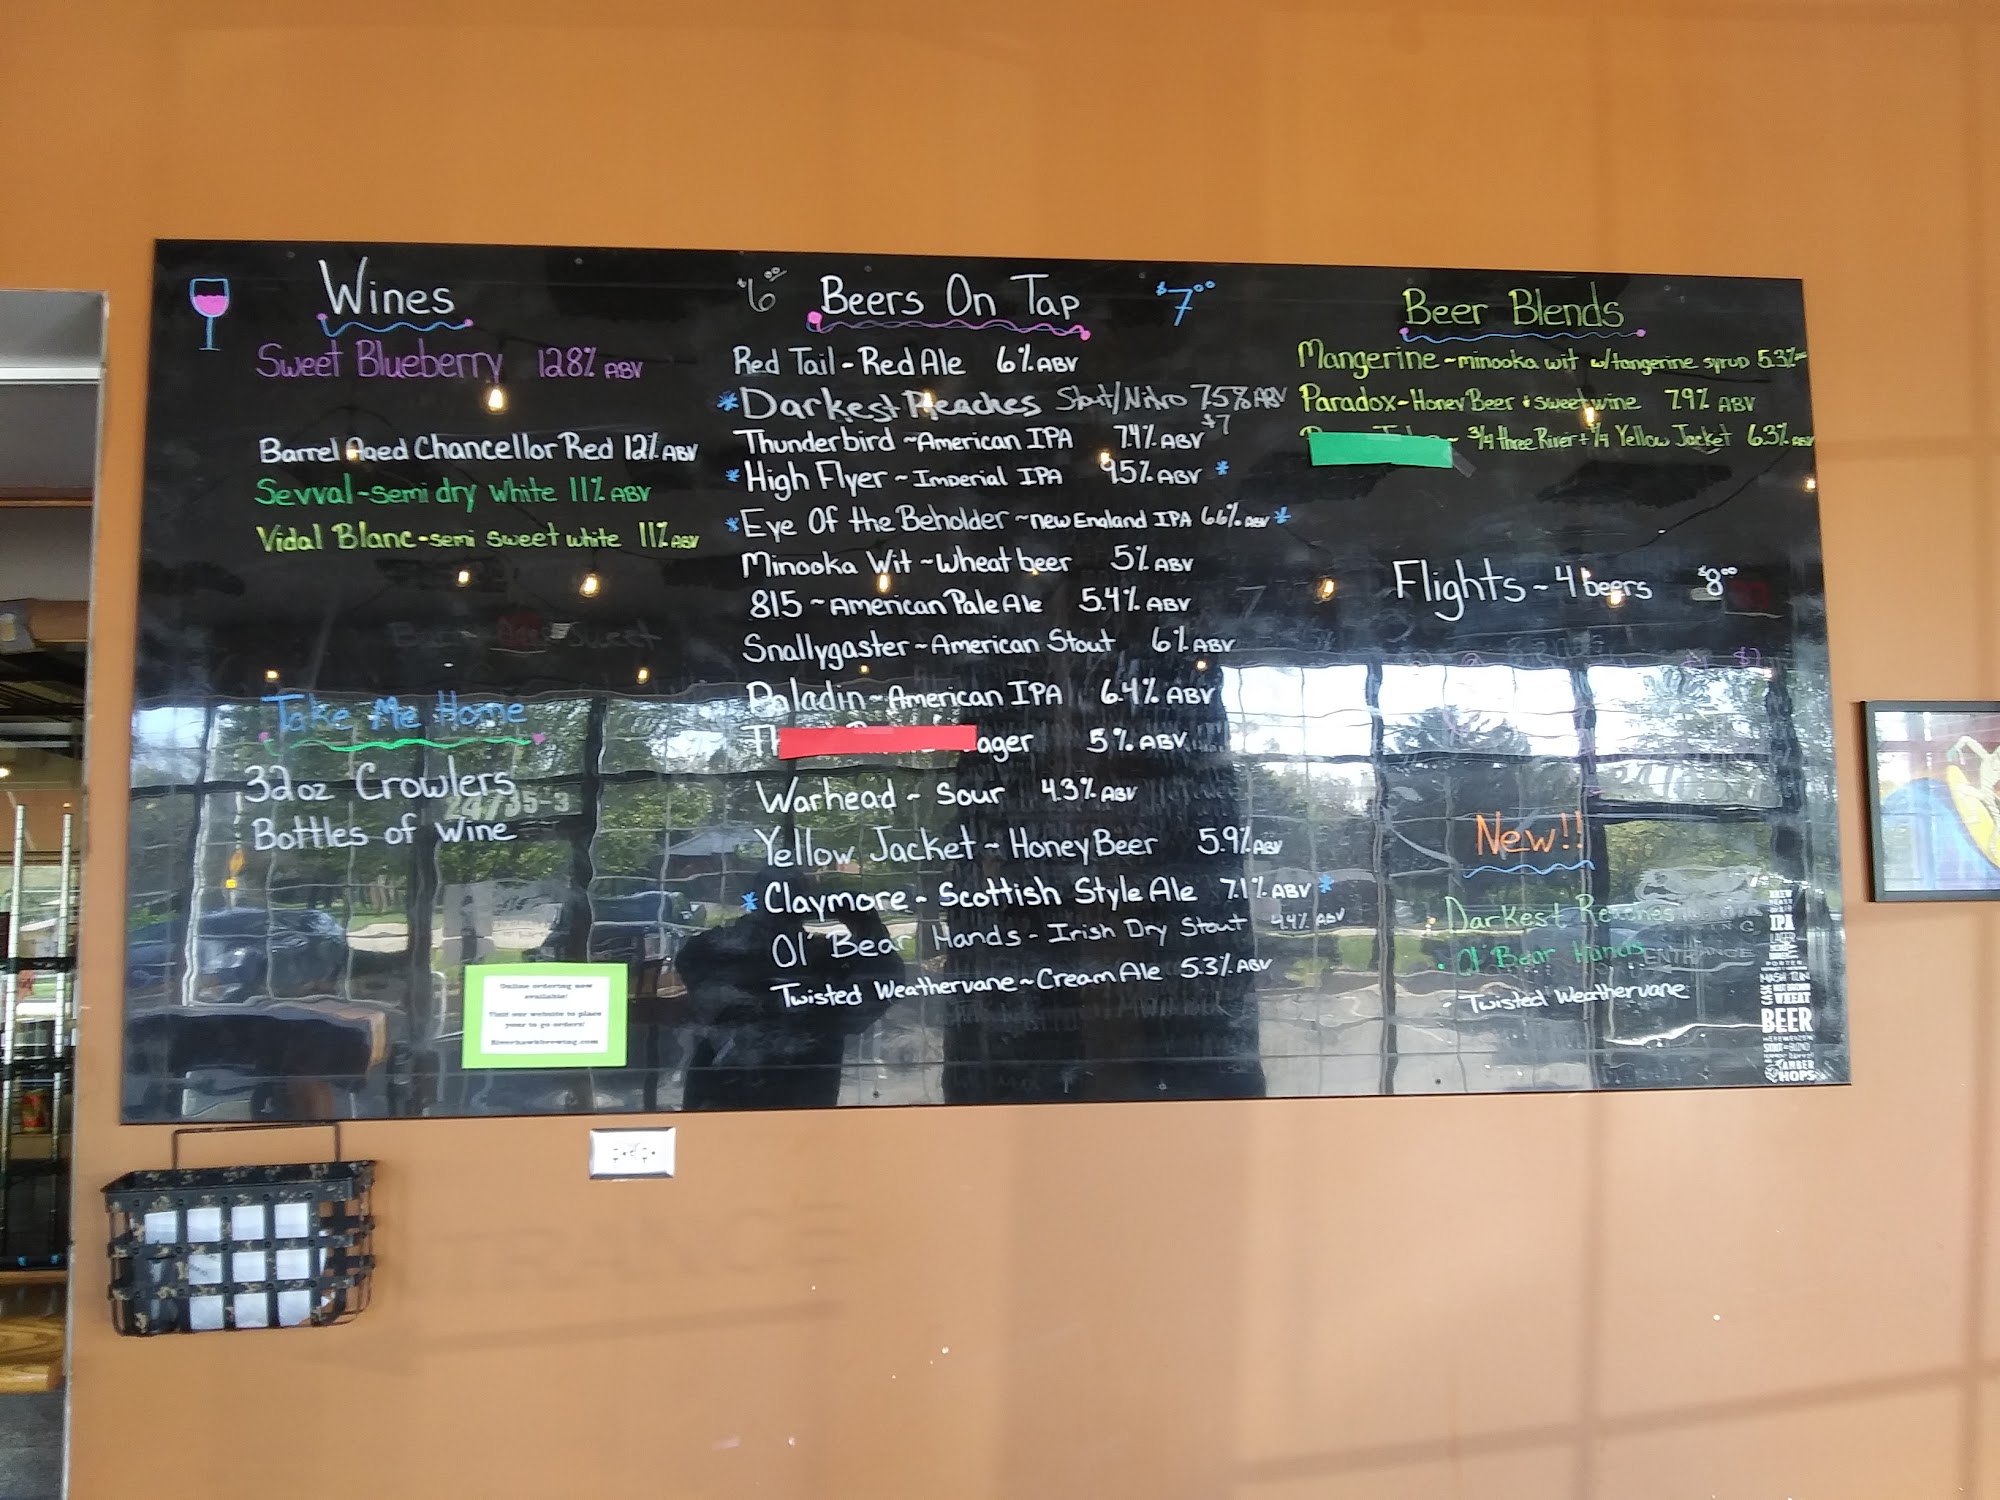 Wines
Sweet Blueberry 12.8% ABV
Barrel Aged Chancellor Red 12% ABV
Sevval-semi dry white 11% ABV
Vidal Blanc-semi sweet white 11% ABV
Take Me Home
32oz Crowlers
Bottles of Wine
24735-3
Online ordering now
available!
Visit our website to place
your to go orders!
Riverhawkbrewing.com
$6.00 Beers On Tap $7.00
Red Tail - Red Ale 6% ABV
*Darkest Reaches Stout/Nitro 7.5% ABV
Thunderbird ~American IPA 7.4% ABV $7
*High Flyer ~ Imperial IPA 9.5% ABV *
*Eye Of the Beholder ~new England IPA 6.6% ABV *
Minooka Wit ~Wheat beer 5% ABV
815 ~American Pale Ale 5.4% ABV
Snallygaster ~American Stout 6% ABV
Paladin ~American IPA 6.4% ABV
Th ager 5% ABV
Warhead ~ Sour 4.3% ABV
Yellow Jacket ~ Honey Beer 5.9% ABV
*Claymore ~ Scottish Style Ale 7.1% ABV *
Ol' Bear Hands - Irish Dry Stout 4.4% ABV
Twisted Weathervane ~Cream Ale 5.3% ABV
Beer Blends
Mangerine ~minooka wit w/tangerine syrup 5.3%
Paradox-Honey Beer + sweet wine 7.9% ABV
~ 3/4 three River + 1/4 Yellow Jacket 6.3% ABV
Flights ~ 4 beers $8.00
New!!
Darkest Reaches
· Ol' Bear Hands
- Twisted Weathervane
ENTRANCE
BREW
IPA
MASH TUN
CASK
WHEAT
BEER
AMBER
HOPS